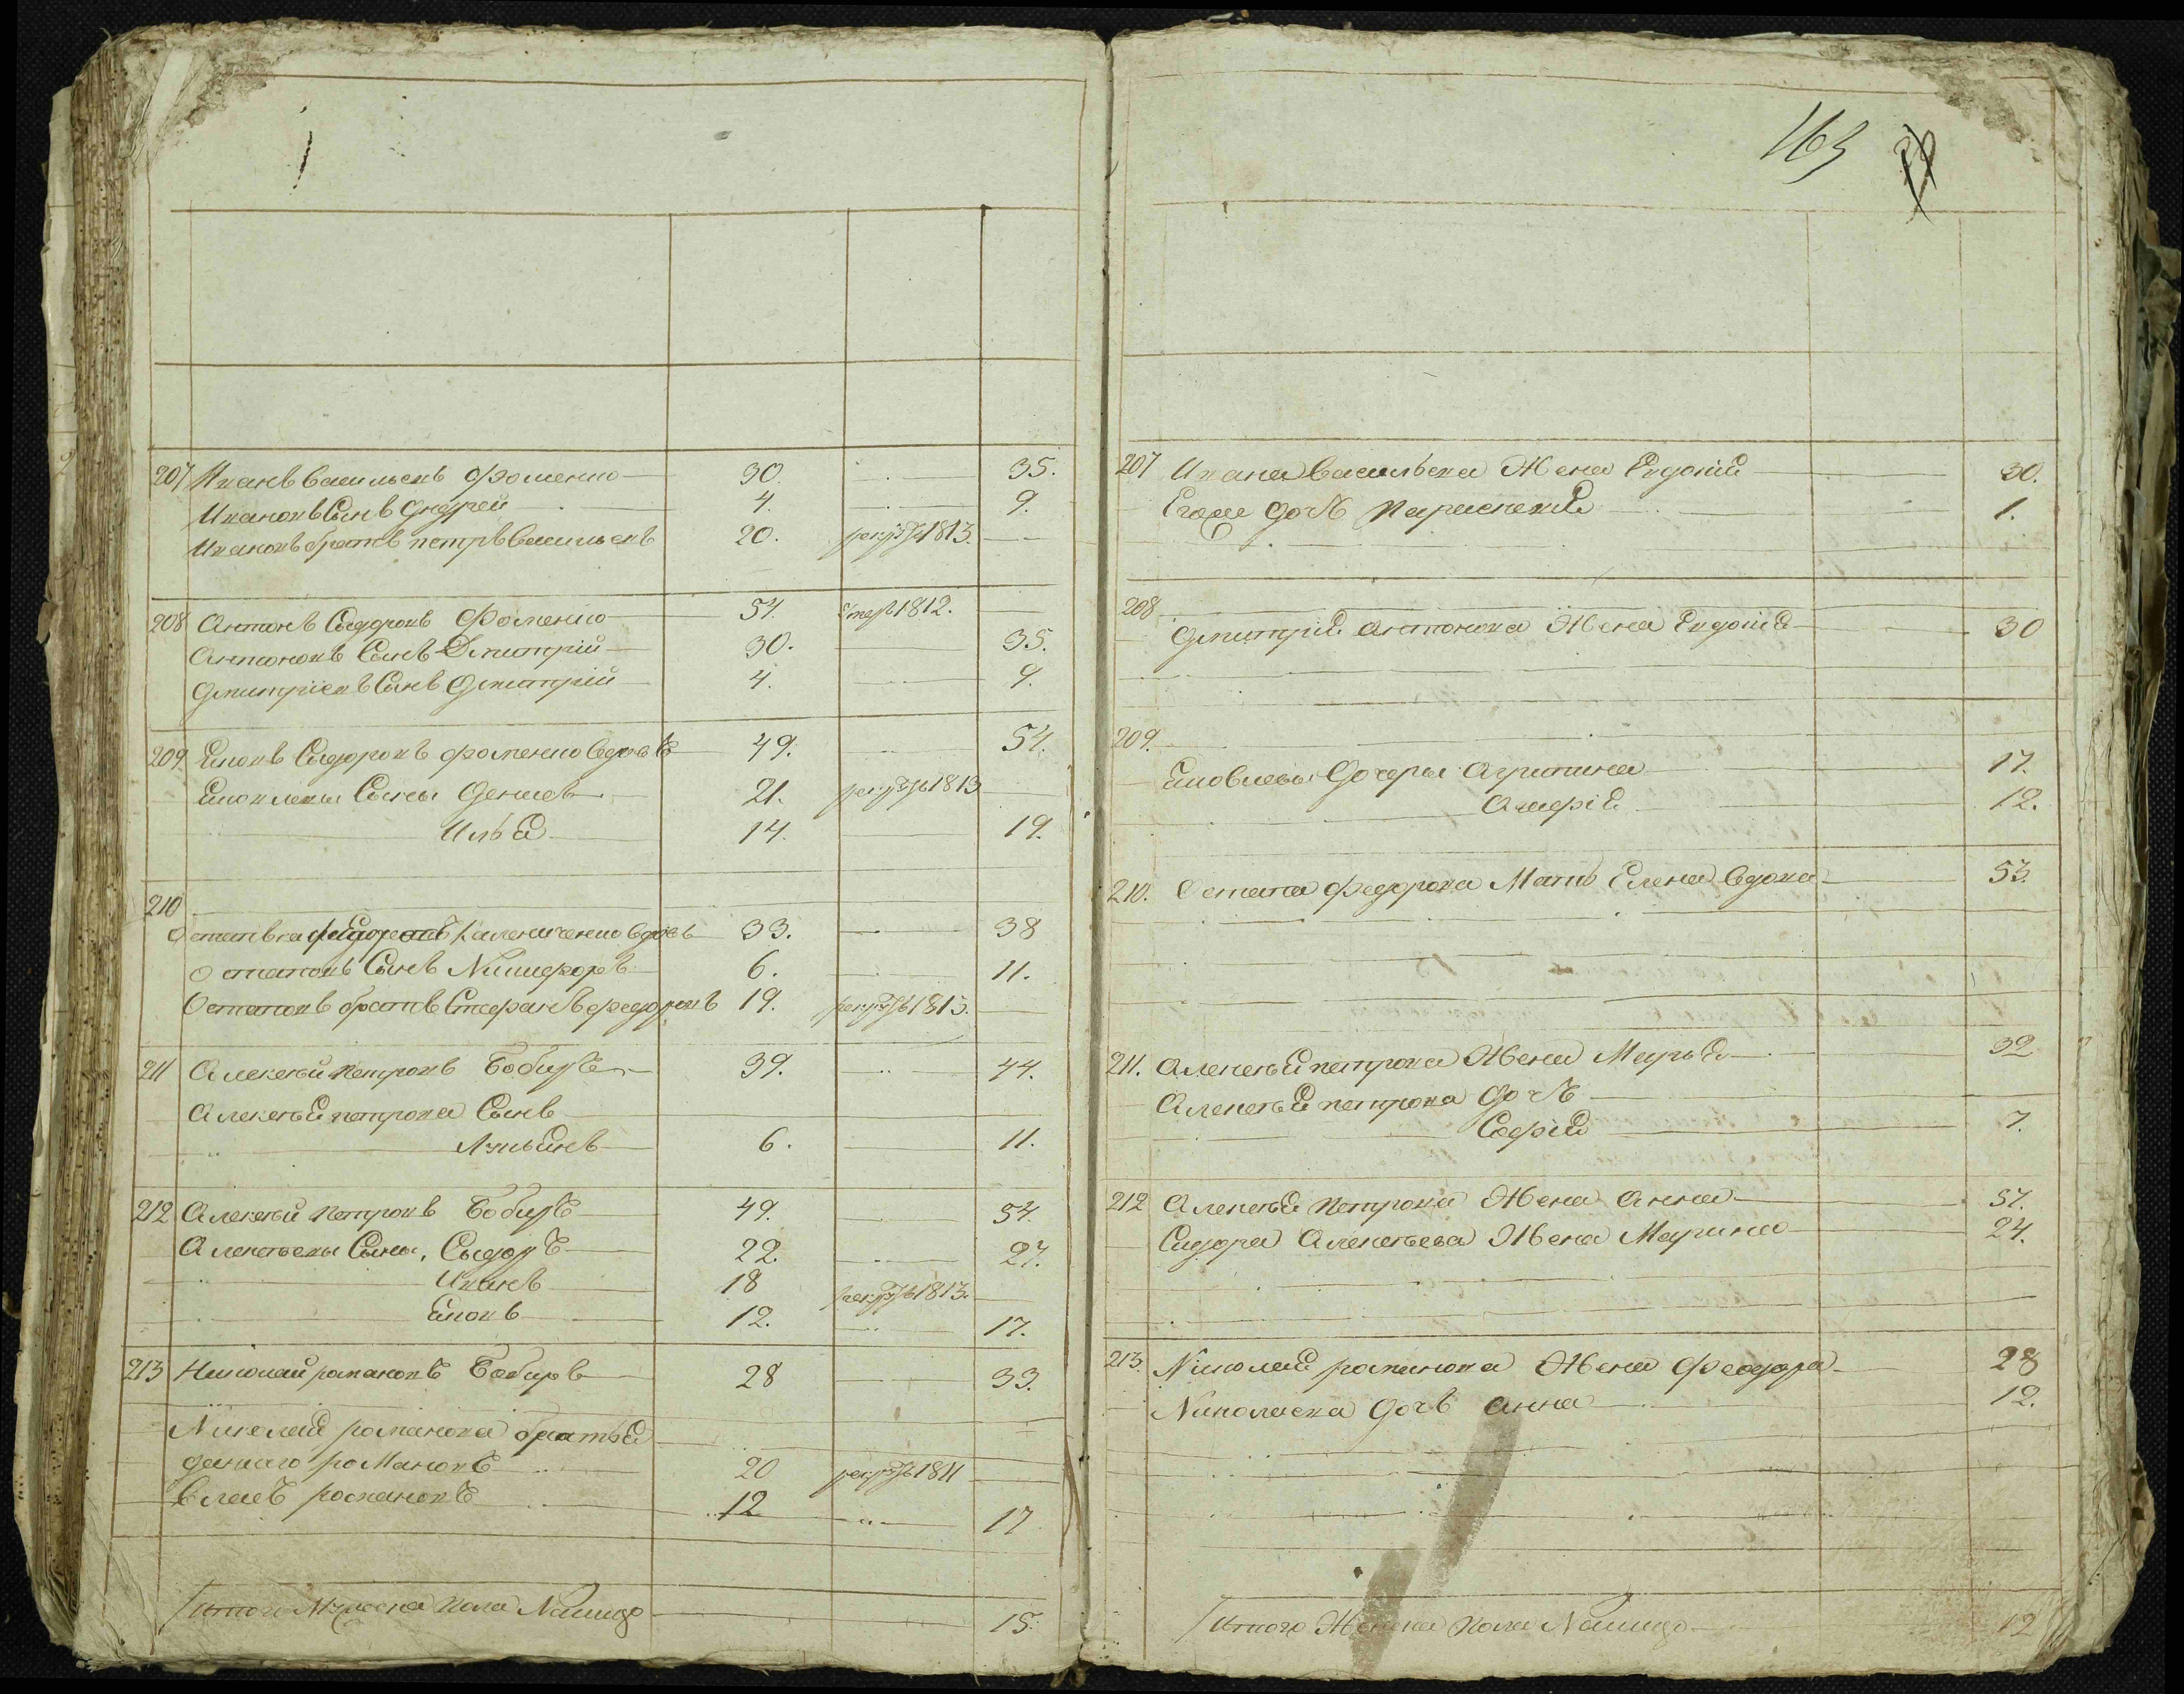 207 Иванъ Васильевъ Фоменко 30. 35.
Ивановъ Сынъ Андрей 4. 9.
Ивановъ братъ петръ Васильевъ 20. рекрутъ 1813.
208 Антонъ Сыдоровъ Фоменко 54. умеръ 1812.
Антоновъ Сынъ Дмитрій 30. 35.
Дмитріевъ Сынъ Дмитрій 4. 9.
209 Яковъ Сыдоровъ фоменко вдовъ 49. 54.
Яковлевы Сыны Денисъ 21. рекрутъ 1813
Илья 14. 19.
210
Остапъ Калениченко вдовъ 33. 38
Остаповъ Сынъ Никифоръ 6. 11.
Остаповъ братъ Стефанъ федоровъ 19. рекрутъ 1813.
211 Алексей петровъ Бобирь 39. 44.
Алексея петрова Сынъ
6. 11.
212 Алексей петровъ Бобирь 49. 54.
Алексеевы Сыны, Сыдоръ 22. 27.
Иванъ 18 рекрутъ 1813.
Яковъ 12. 17.
213 Николай романовъ Бобиръ 28 33.
Николая романова братья
данило романовъ 20 рекрутъ 1811
Власъ романовъ 12 17
Итого Мужеска пола Налицо 15.
163
207 Ивана Васильева Жена Евдокия 30.
Егоже дочь Параскевия 1.
208
Дмитрия антонова Жена Евдокия 30
209.
Яковлевы Дочери Агрипина 17.
12.
210. Остапа федорова Мать Елена вдова 53.
211. Алексея петрова Жена Марья 32
Алексея петрова дочь
Софія 7.
212 Алексея петрова Жена анна 51.
Сидора Алексеева Жена Марина 24.
213. Николая романова Жена Феодора 28
Николаева дочь анна 12.
Итого Женска пола Налицо 12